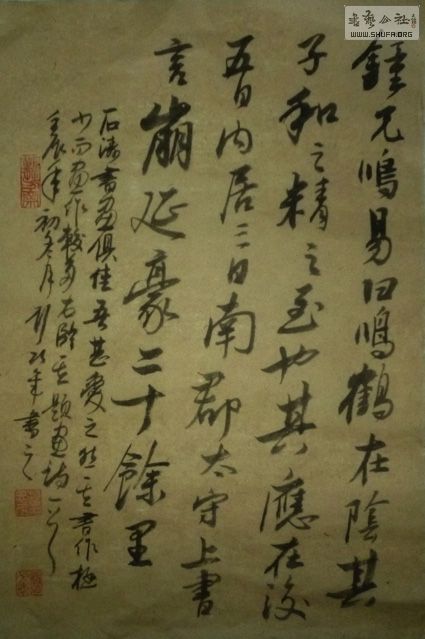 鍾兄鳴易曰鳴鶴在陰其
子和之精之至也其應在後
五日内居三日南郡太守上書
言崩延豪二十餘里
石涛書画俱佳吾甚愛之然其書作極
少而画作較多右臨其题画诗一
壬辰年初冬月年書之
書藝公社
WWW.SHUFA.ORG